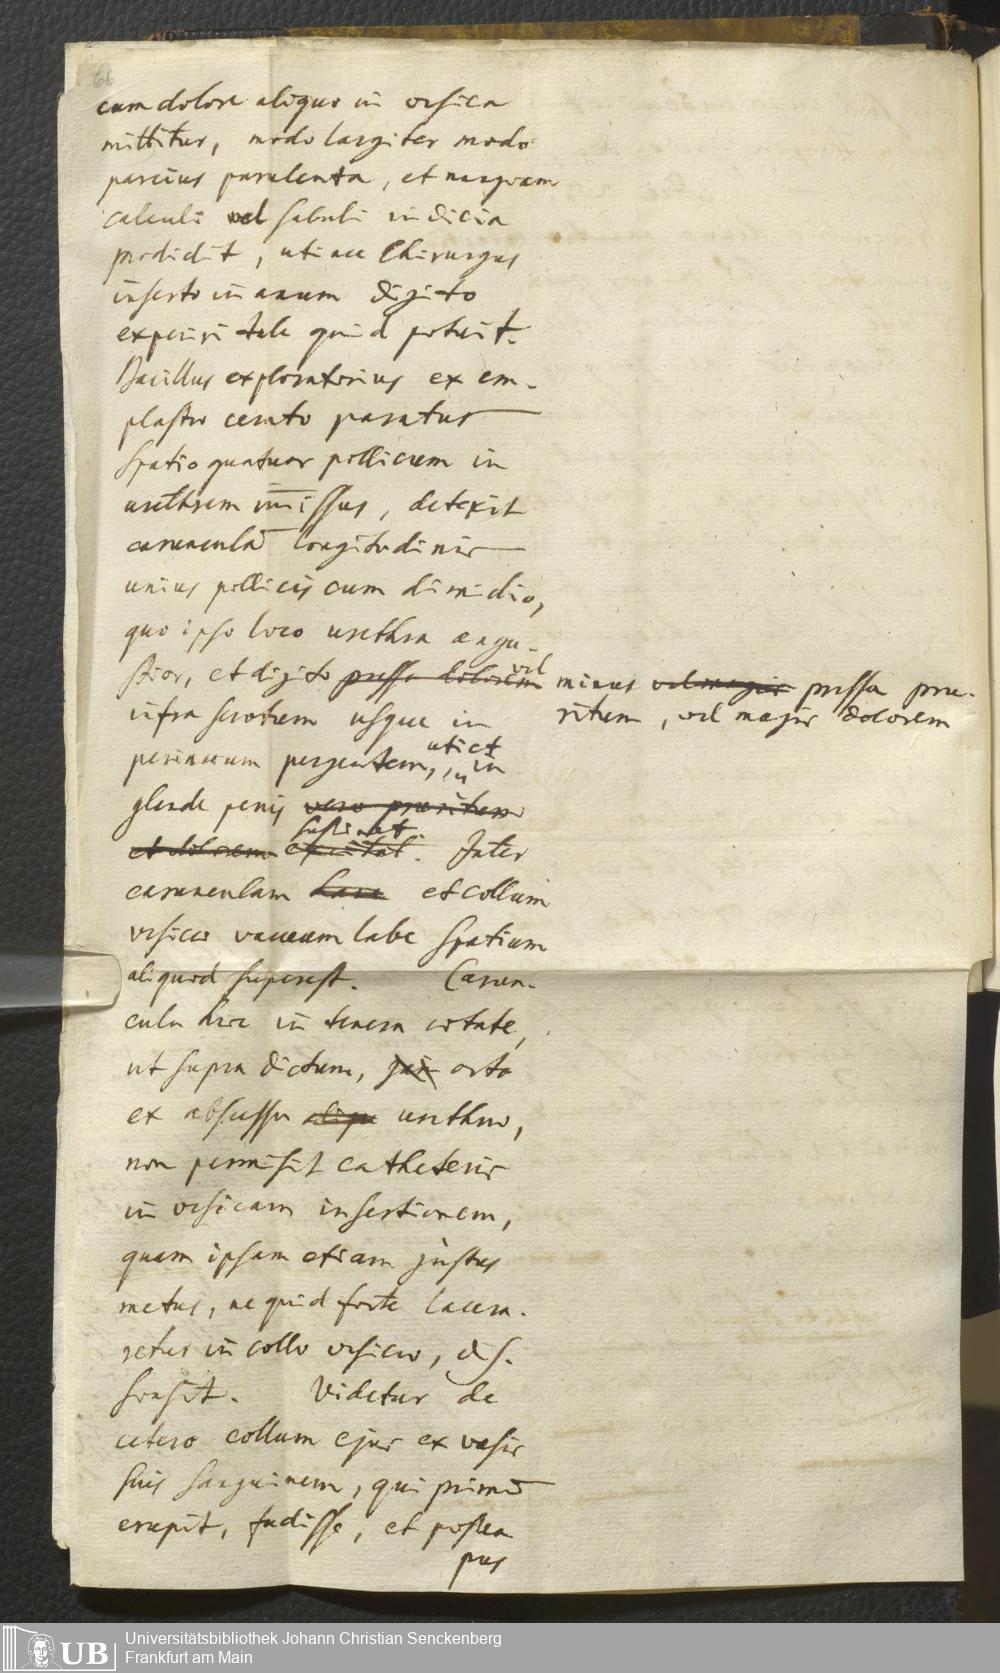 66
cum dolore aliquo in vesica
mittitur, modo largiter modo
parcius purulenta, et nusquam
calculi vel sabuli indicia
prodidit, uti nec Chirurgus
inserto in anum digito
experiri tale quid potuit.
Bacillus exploratorius ex em-
plastro cerato paratus
spatio quatuor pollicum in
urethram im̅issus, detexit
carunculam̅ longitudinis
unius pollicis cum dimidio,
quo ipso loco urethra angu-
stior, et digito pressa dolorem vel minus vel magis pressa pru-
infra scrotum usque in ritum, vel major dolorem
perinaeum pergentem, uti et in
glande penis vero pruritum
et dolorem excitat sustinet. Inter
carunculam hanc et collum
vesicae vacuum labe spatium
aliquod superest. Carun-
cula haec in tenera aetate,
ut supra dictum, jam orta
ex abscessu aliquo urethrae,
non permisit catheteris
in vesicam insertionem,
quam ipsam etiam justus
metus, ne quid forte lacera-
retur in collo vesicae, dis-
svasit. Videtur de
cetero collum ejus ex vasis
suis sanguinem, qui primū
erupit, fudisse, et postea
pus
Universitätsbibliothek Johann Christian Senckenberg
Frankfurt am Main
UB